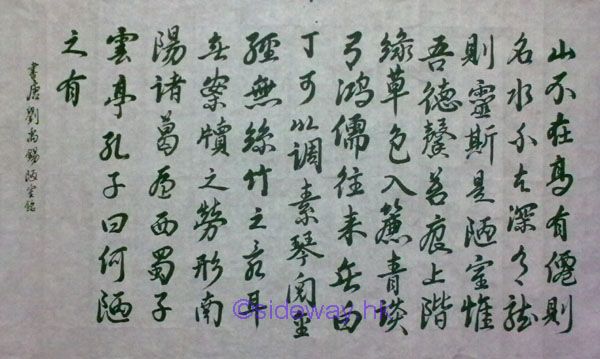 山不在高有僊則
名水不在深有龍
則靈斯是陋室惟
吾德馨苔痕上階
緑草色入簾青談
鴻儒往来無白
丁可以调素琴阅金
經無絲竹之亂耳
無案牘之勞形南
陽諸葛廬西蜀子
雲亭孔子曰何陋
之有
書唐劉禹錫陋室銘
©sideway.hk